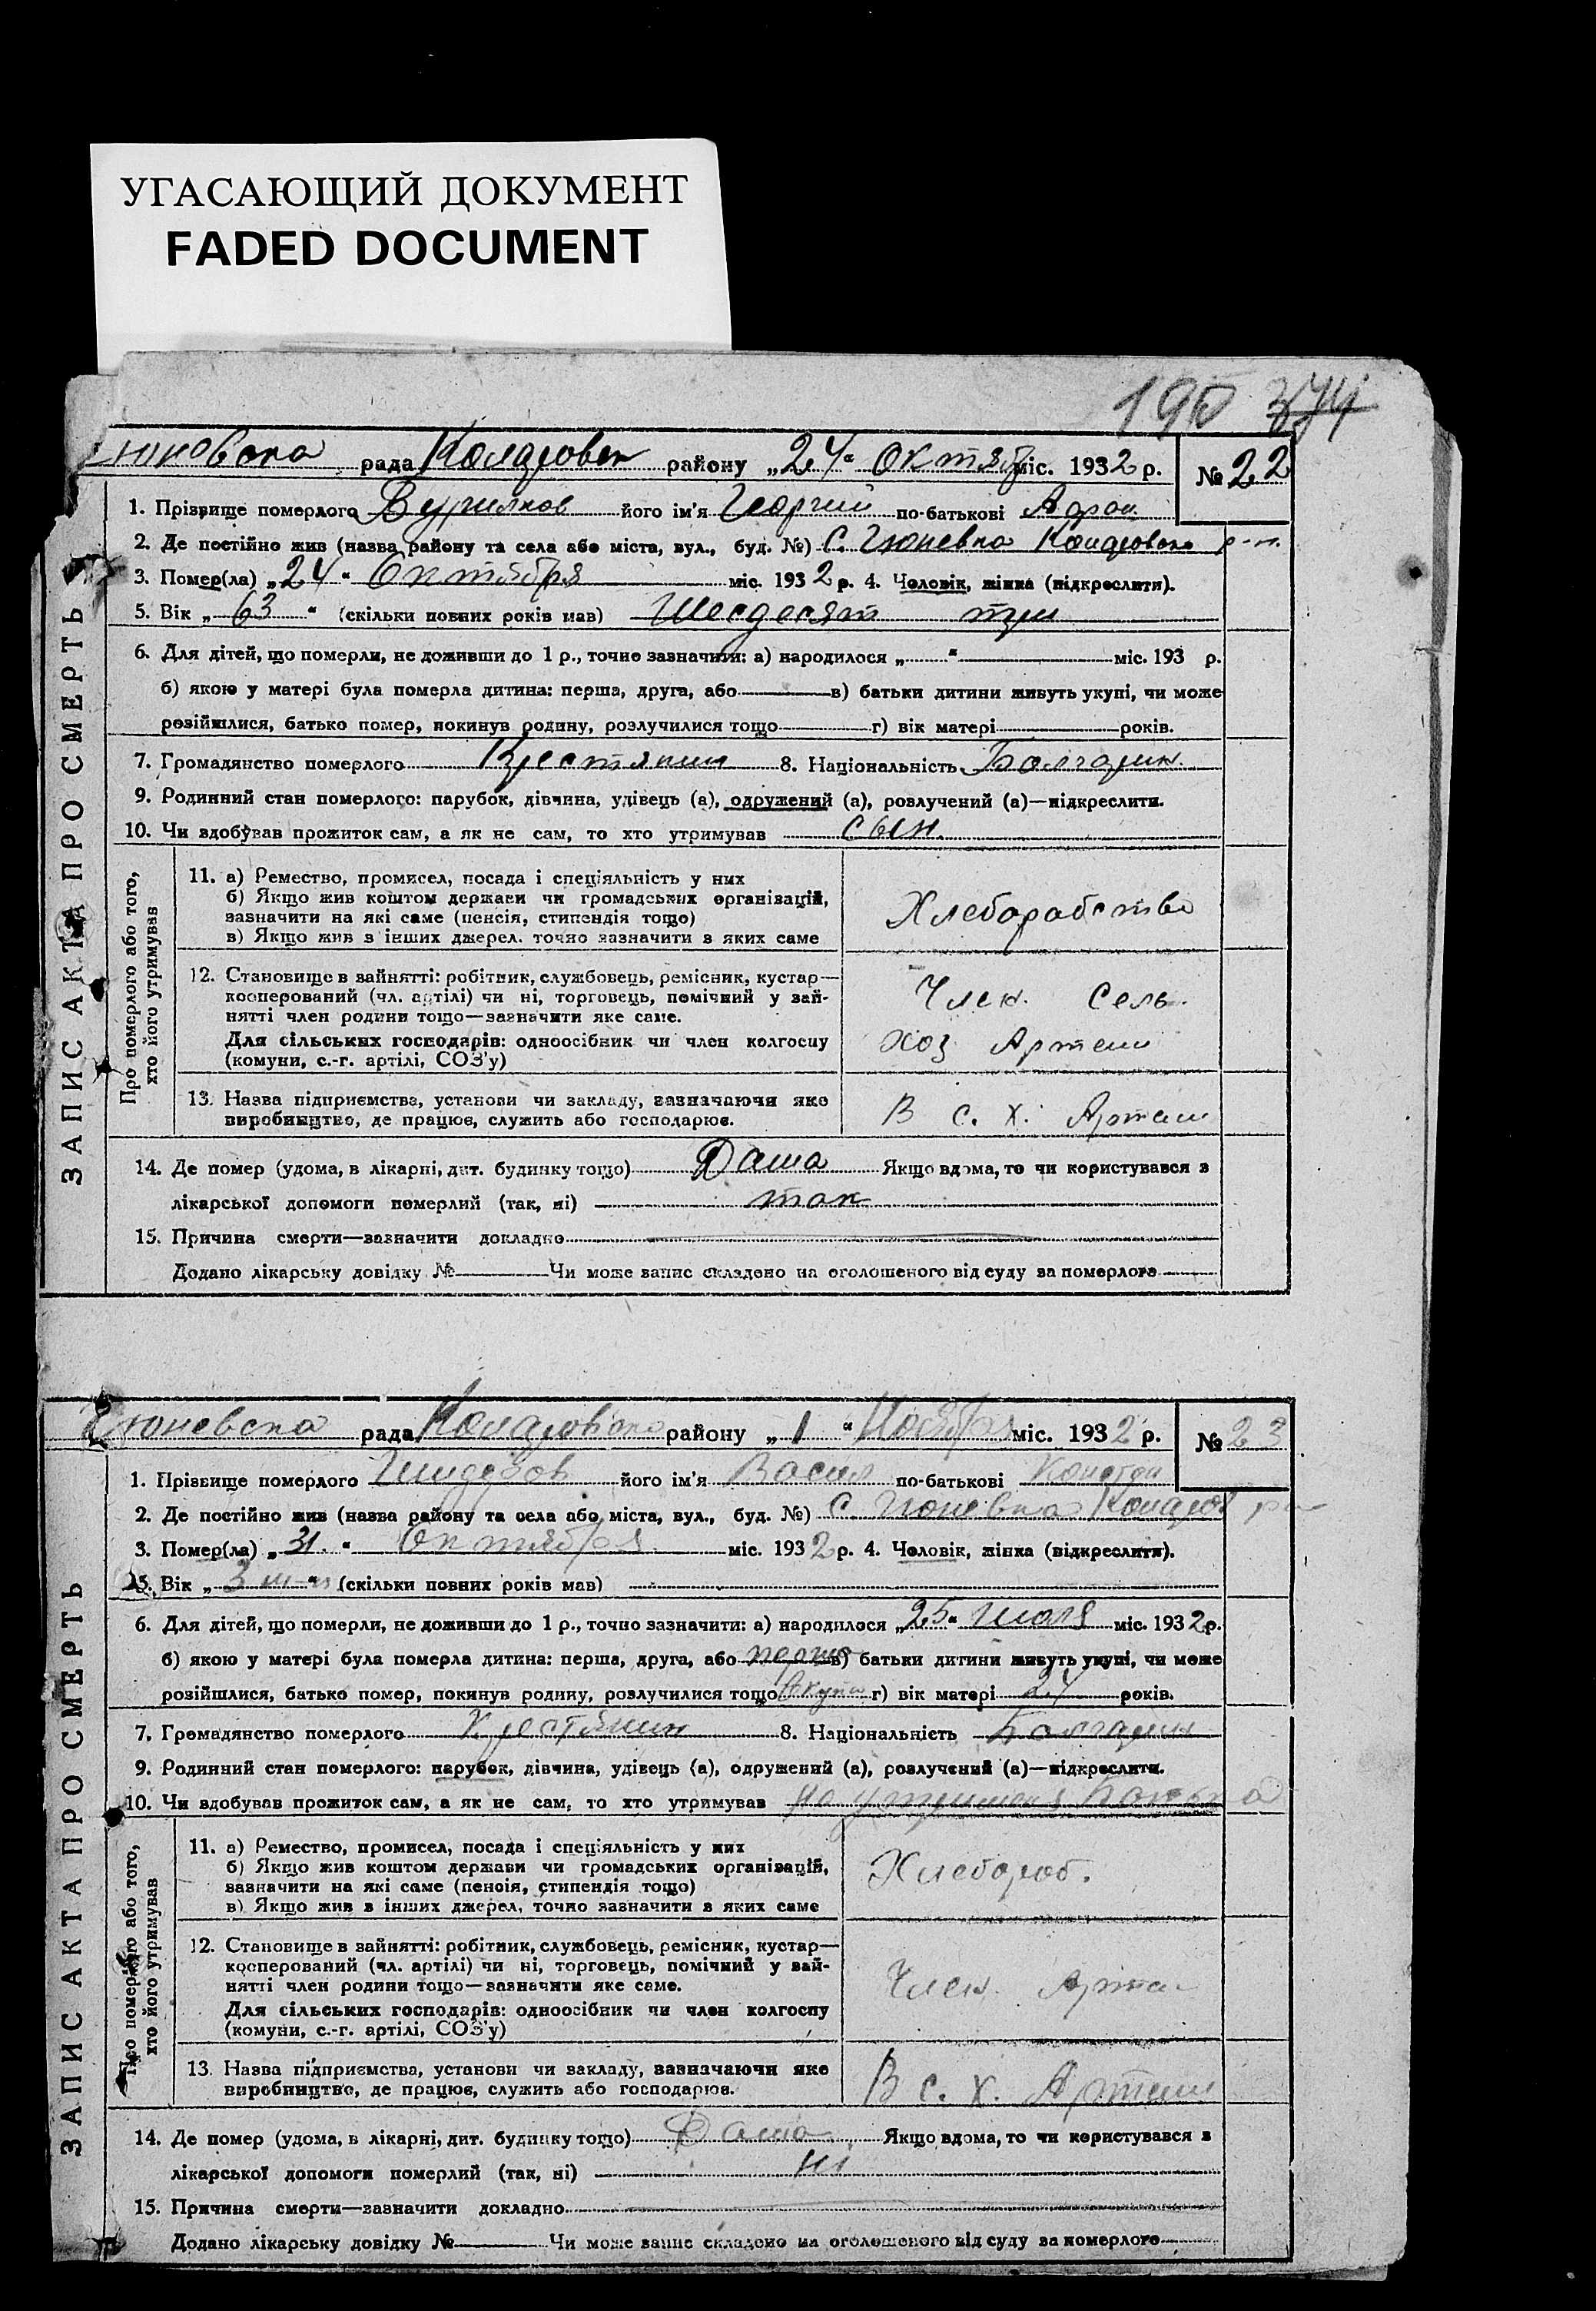 УГАСАЮЩИЙ ДОКУМЕНТ
FADED DOCUMENT
190 374
рада району „24“ Октяб міс. 1932 р. № 22
1. Прізвище померлого його ім'я Георгий по-батькові
2. Де постійно жив (назва району та села або міста, вул., буд. №) с. Гюневка р-н.
3. Помер(ла) „24“ Октября міс. 1932 р. 4. Чоловік, жінка (підкреслити).
5. Вік „63“ (скільки повних років мав) Шесдесят три
6. Для дітей, що померли, не доживши до 1 р., точно зазначити: а) народилося „ “ міс. 193 р.
б) якою у матері була померла дитина: перша, друга, або в) батьки дитини живуть укупі, чи може
розійшлися, батько помер, покинув родину, розлучилися тощо г) вік матері років.
7. Громадянство померлого Крестянин 8. Національність Болгарин.
9. Родинний стан померлого: парубок, дівчина, удівець (а), одружений (а), розлучений (а)—підкреслити.
10. Чи здобував прожиток сам, а як не сам, то хто утримував сын.
ЗАПИС АКТА ПРО СМЕРТЬ
Про померлого або того, хто його утримував
11. а) Ремество, промисел, посада і спеціяльність у них
б) Якщо жив коштом держави чи громадських організацій,
зазначити на які саме (пенсія, стипендія тощо)
в) Якщо жив з інших джерел. точно зазначити з яких саме
Хлеборобство
12. Становище в зайнятті: робітник, службовець, ремісник, кустар—
кооперований (чл. артілі) чи ні, торговець, помічний у зай-
нятті член родини тощо—зазначити яке саме.
Для сільських господарів: одноосібник чи член колгоспу
(комуни, с.-г. артілі, СОЗ'у)
Член. Сель.
хоз Артели
13. Назва підприємства, установи чи закладу, зазначаючи яке
виробництво, де працює, служить або господарює.
В с. х. Артели
14. Де помер (удома, в лікарні, дит. будинку тощо) Дома Якщо вдома, то чи користувався з
лікарської допомоги померлий (так, ні) так
15. Причина смерти—зазначити докладно
Додано лікарську довідку № Чи може запис складено на оголошеного від суду за померлого
Гюневска рада району „1“ Ноября міс. 1932 р. № 23
1. Прізвище померлого його ім'я Васил по-батькові Констан
2. Де постійно жив (назва району та села або міста, вул., буд. №) с. Гюневка
3. Помер(ла) „31.“ Октября міс. 1932 р. 4. Чоловік, жінка (відкреслити).
5. Вік „3 “ (скільки повних років мав)
6. Для дітей, що померли, не доживши до 1 р., точно зазначити: а) народилося „25“ Июля міс. 1932 р.
б) якою у матері була померла дитина: перша, друга, або перша в) батьки дитини живуть укупі, чи може
розійшлися, батько помер, покинув родину, розлучилися тощо г) вік матері 24 років.
7. Громадянство померлого Крестянин 8. Національність Болгарин
9. Родинний стан померлого: парубок, дівчина, удівець (а), одружений (а), розлучений (а)—підкреслити.
10. Чи здобував прожиток сам, а як не сам, то хто утримував
ЗАПИС АКТА ПРО СМЕРТЬ
Про померлого або того, хто його утримував
11. а) Ремество, промисел, посада і спеціяльність у них
б) Якщо жив коштом держави чи громадських організацій,
зазначити на які саме (пенсія, стипендія тощо)
в) Якщо жив з інших джерел, точно зазначити з яких саме
Хлебороб.
12. Становище в зайнятті: робітник, службовець, ремісник, кустар—
кооперований (чл. артілі) чи ні, торговець, помічний у зай-
нятті член родини тощо—зазначити яке саме.
Для сільських господарів: одноосібник чи член колгоспу
(комуни, с.-г. артілі, СОЗ'у)
Член.
13. Назва підприємства, установи чи закладу, зазначаючи яке
виробництво, де працює, служить або господарює.
В с. х. Артели
14. Де помер (удома, в лікарні, дит. будинку тощо) Дома Якщо вдома, то чи користувався з
лікарської допомоги померлий (так, ні) Ні
15. Причина смерти—зазначити докладно
Додано лікарську довідку № Чи може запис складено на оголошеного від суду за померлого